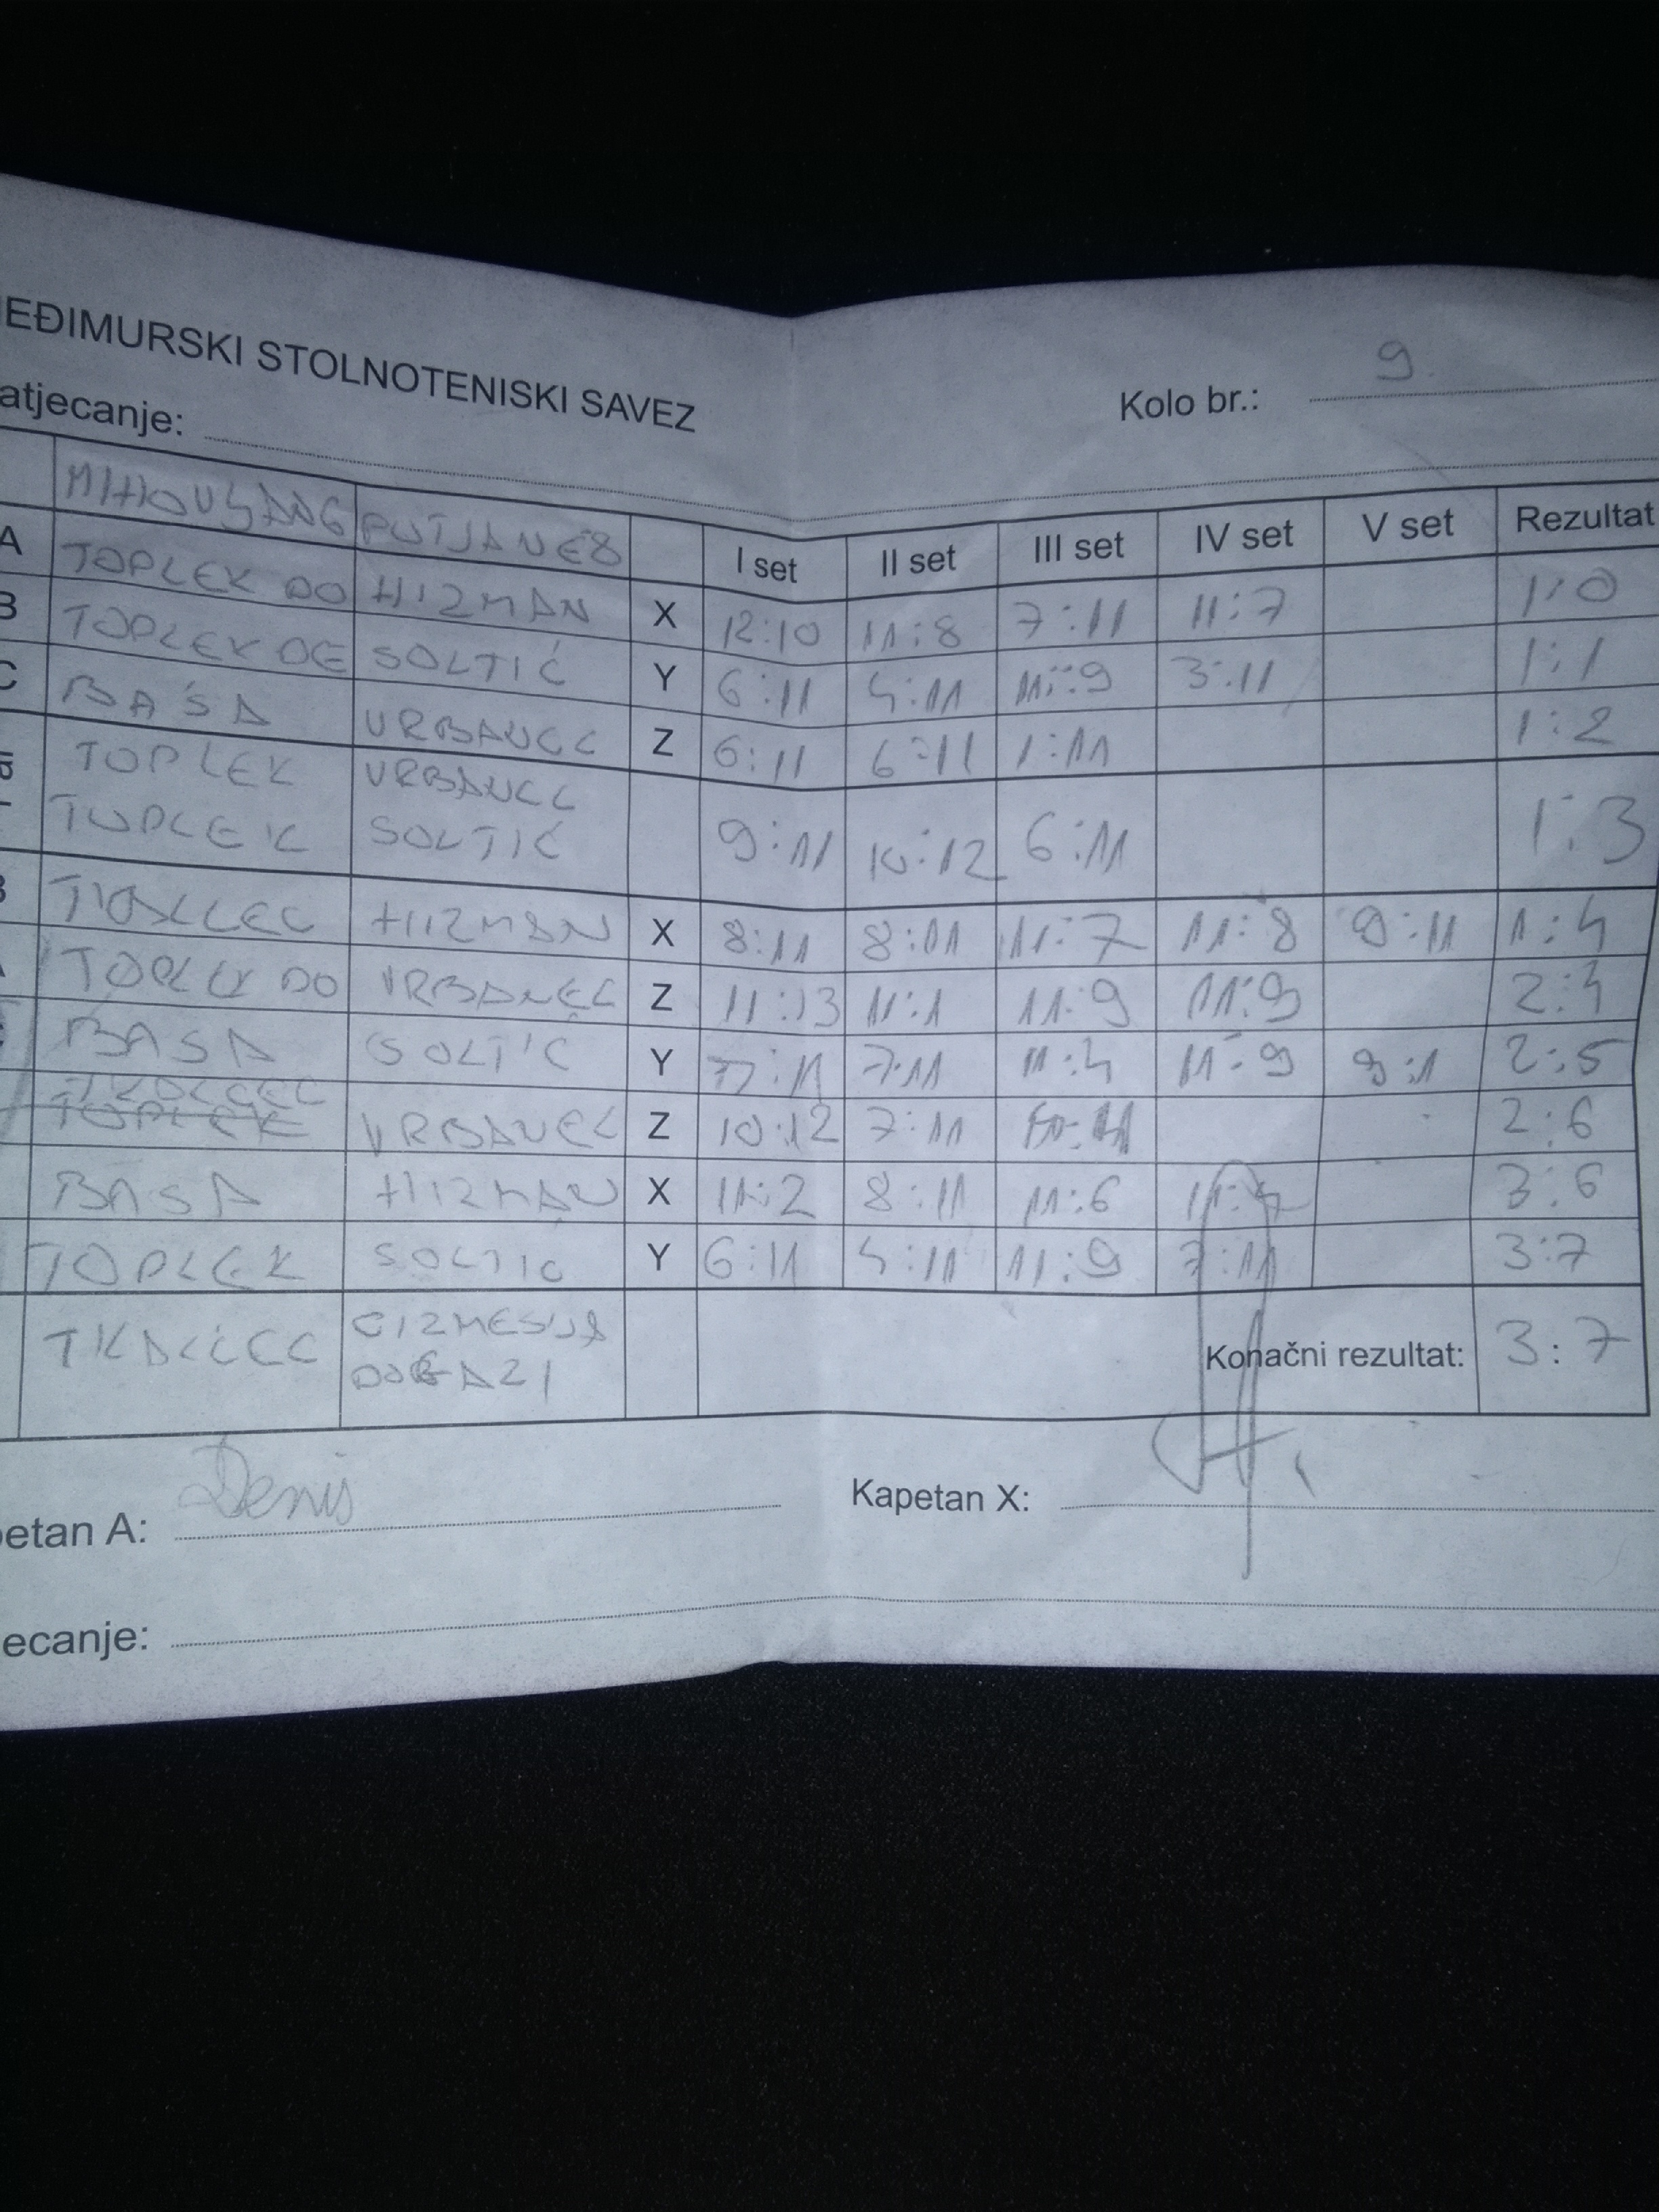 EĐIMURSKI STOLNOTENISKI SAVEZ
Kolo br.: 9.
atjecanje:
I set II set III set IV set V set Rezultat
A TOPLEK DO HIZMAN X 12:10 11:8 7:11 11:7 1:0
B TOPLEK DE SOLTIĆ Y 6:11 4:11 11:9 3:11 1:1
C BAŠA VRBANEC Z 6:11 6:11 1:11 1:2
TOPLEK VRBANEC
TOPLEK SOLTIĆ 9:11 10:12 6:11 1:3
B TKALCEC HIZMAN X 8:11 8:11 11:7 11:8 9:11 1:4
TOPLEK DO VRBANEC Z 11:13 11:1 11:9 11:9 2:4
BASA SOLTIĆ Y 7:11 7:11 11:4 11:9 9:11 2:5
TKALCEC
TOPLEK VRBANEC Z 10:12 7:11 2:6
BASA HIZMAN X 11:2 8:11 11:6 3:6
TOPLEK SOLTIC Y 6:11 4:11 11:9 7:11 3:7
TKALCEC CIZMESIJA
DOGAZI
Konačni rezultat: 3:7
petan A: Denis
Kapetan X:
jecanje: